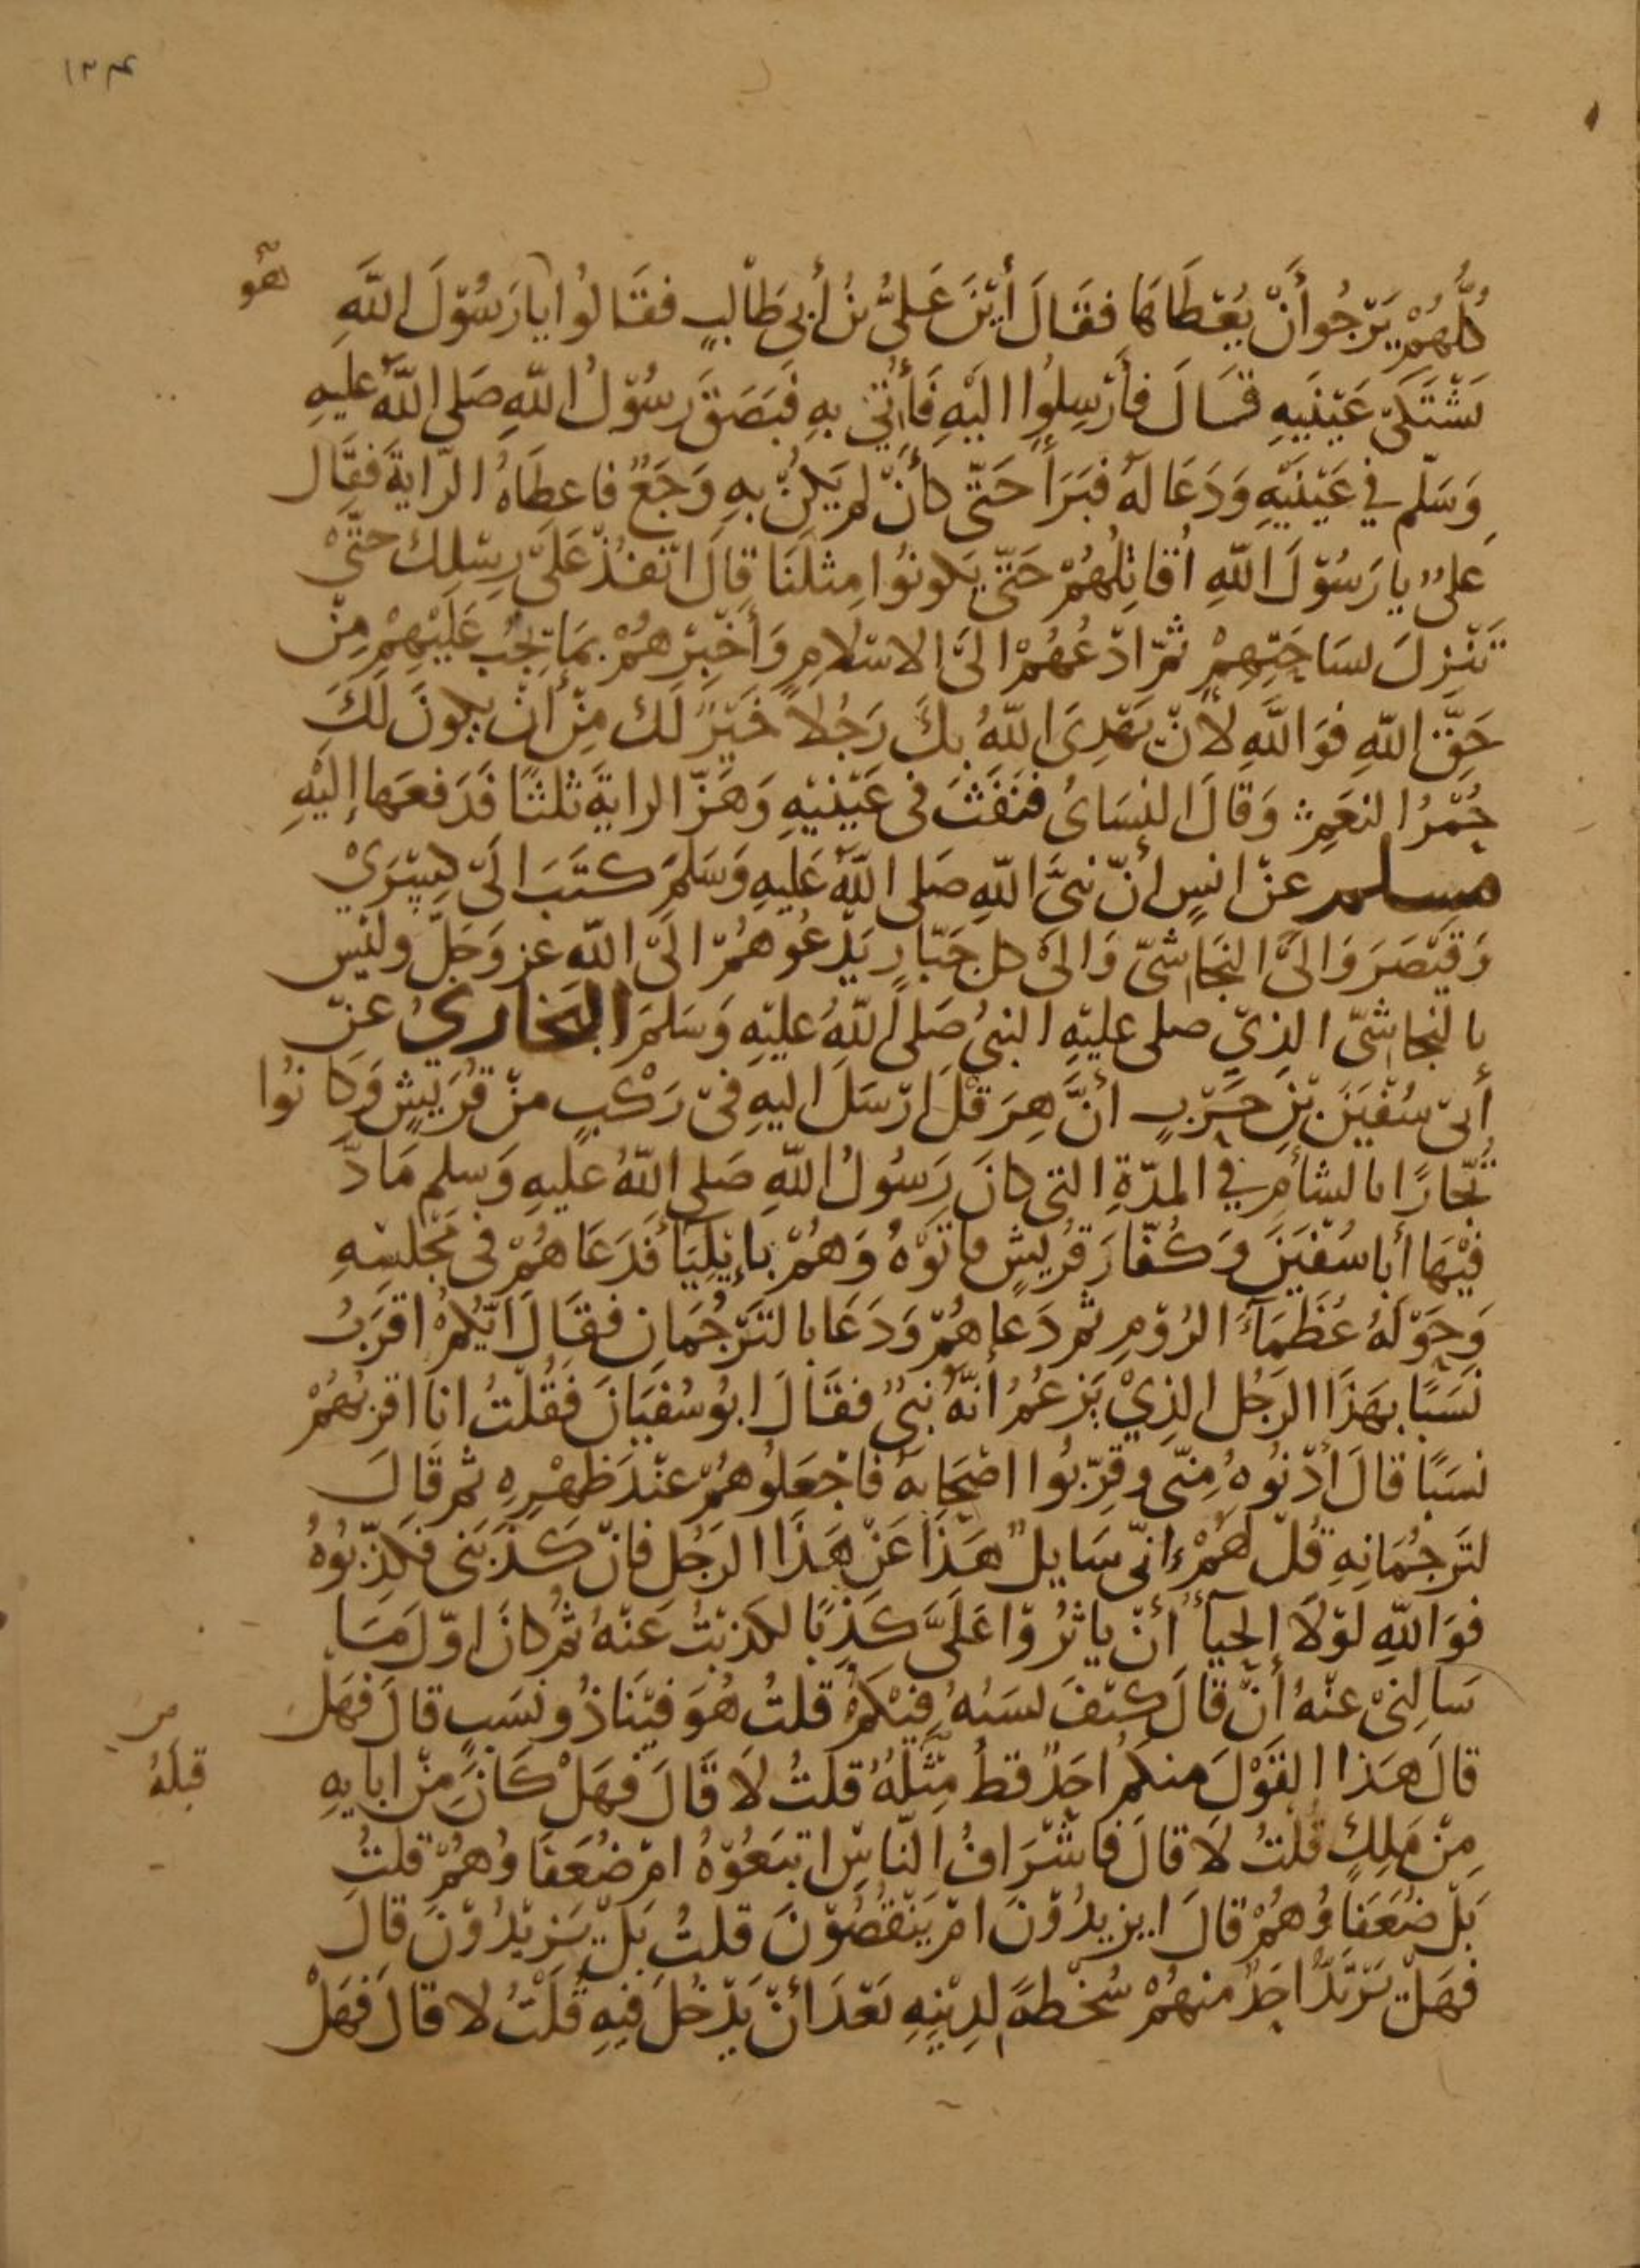 ١٣٤
كُلُّهُمْ يَرْجُوا أَنْ يُعْطَاهَا فَقَالَ أَيْنَ عَلِيُّ بْنُ أَبِي طَالِبٍ فَقَالُوا يَا رَسُوْلَ اللَّهِ هُو
يَشْتَكِي عَيْنَيهِ قَالَ فَأَرْسِلُوا الَيْهِ فَأُتِيَ بِهِ فَبَصَقَ رَسُوْلُ اللّهِ صَلى اللَّهُ عليهِ
وَسَلّم في عَيْنَيْهِ وَدَعَا لَهُ فَبَرَأَ حَتّى كَأنْ لم يَكُنْ بِهِ وَجَعٌ فاعطَاهُ الرّايةَ فَقَال
عليٌ يا رَسُوْلَ اللّهِ اُقَاتِلُهُمْ حَتّى يَكونُوا مِثلَنَا قالَ انْفُذْ عَلَى رِسْلِكَ حتّى
تَنْزِلَ بسَاحَتِهِمْ ثمّ ادْعُهُمْ الىَ الاسْلامِ وَأَخْبِرْهُمْ بمَا يَجِبُ عَلَيْهِمْ مِنْ
حَقِّ اللّهِ فَوَاللَّهِ لأَنْ يَهْدِيَ اللّهُ بِكَ رَجُلاً خَيْرٌ لَك مِنْ أنْ يكونَ لَكَ
حُمْرُ النعَمِ وَقالَ النسَائُ فنَفَثَ في عَيْنَيْهِ وَهَزّ الرايةَ ثلثًا فَدَفعَها إليْهِ
مسلم عَنْ انسٍ أنّ نبيَّ اللّهِ صَلى اللَّهُ عَليهِ وَسَلمَ كتَبَ الَى كِسْرَيْ
وَقيْصَرَ وَالىَ النجَاشيّ وَالىَ كل جَبّارٍ يَدْعُوهُمْ الىَ اللّه عز وَجَلّ وليْس
بالنجاشيّ الذِيْ صلى عليْهِ النبيُ صَلى اللّهُ عليْهِ وَسَلمَ البخاريُ عَنْ
أبىْ سُفْيَنَ بْنِ حَرْبٍ أنَّ هِرَقْلَ ارْسَلَ اليهِ فىْ رَكْبٍ منْ قُرَيْشٍ وَكانُوا
تُجَّارًا بالشأمِ في المدّةِ التى كانَ رَسُولُ اللّهِ صَلى اللّهُ عليهِ وَسلم مَادَّ
فيْهَا أبا سُفْيَنَ وَكُفّارَ قرُيشٍ فاتوْهُ وَهُمْ بإِيْلِيَا فَدَعَاهُمْ فى مَجْلسِهِ
وَحَوْلَهُ عُظَمَاءُ الرُوْمِ ثم دَعاهُمْ وَدَعَا بالتَرْجُمَانِ فقَالَ ايّكُمْ اقرَبُ
نَسَبًا بهَذَا الرَجُل الذِيْ يَزعُمُ انّهُ نبيٌ فقَالَ ابُوسُفيَانَ فَقُلْتُ انا اقربُهُمْ
نسَبًا قالَ أدْنُوهُ مِنّى وقرّبُوا اصْحَابهُ فاجْعَلُوهُمْ عنْدَ ظهْرِهِ ثم قَالَ
لتَرجُمَانِهِ قُلْ لهُمْ إنّى سَايلٌ هَذَا عَنْ هَذَا الرَجُلِ فانْ كَذَبَنى فكذِّبُوهُ
فوَاللّهِ لوْلاَ الحيَآءُ أنْ ياثُرُوْا عَلَىَّ كَذِبًا لكذبْتُ عَنْهُ ثمُ كانَ اوّلَ مَا
سَالنىْ عنْهُ أنْ قالَ كيْفَ نسَبُهُ فيْكمُ قلتُ هُوَ فيْنَا ذُو نسَبٍ قالَ فَهَلْ
قالَ هَذا القوْلَ منكمُ احَدٌ قطُ مِثْلَهُ قلتُ لاَ قَالَ فهَلْ كَانَ مِنْ ابايهِ
من
قبلَهُ
مِنْ مَلِكٍ قُلتُ لاَ قالَ فاشْرَافُ النّاسِ اتبَعُوْهُ امْ ضُعَفَاوُهُمْ قلتُ
بَلْ ضُعَفَاوُهُمْ قالَ ايزيدُوْنَ امْ يَنْقُصُوْنَ قلتُ بَلْ يَزيْدُوْنَ قالَ
فهَلْ يَرْتَدُّ احَدٌ منهُمْ سُخْطةً لدِيْنِهِ بَعْدَ أنْ يَدْخُلَ فيْهِ قُلْتُ لا قالَ فَهَلْ